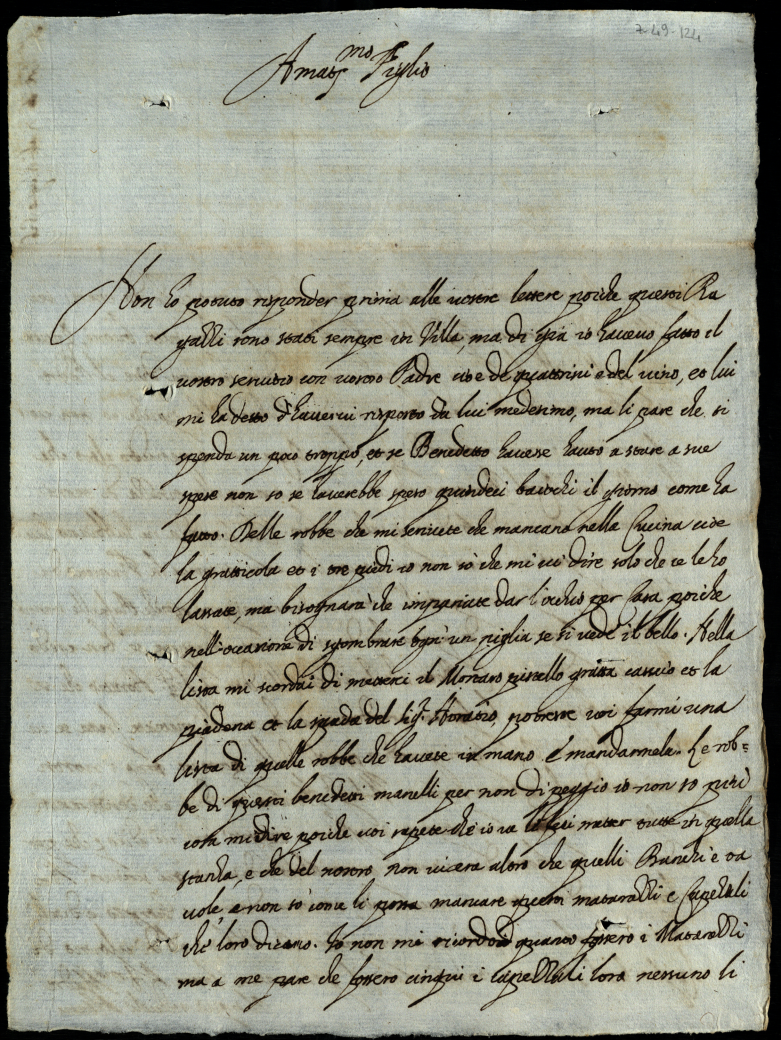 7-49-124
Amatis.mo Figlio
Non ho potuto risponder prima alle vostre lettere poiche questi Ra
gazzi sono stati sempre in Villa, ma di già io havevo fatto il
vostro servitio con vostro Padre cioè de quattrini e del vino, et lui
mi ha detto d'havervi risposto da lui medesimo, ma li pare che si
spenda un poco troppo, et se Benedetto havesse hauto a stare a sue
spese non so se haverebbe speso quindeci baiochi il giorno come ha
fatto. Delle robbe che mi scrivete che mancano nella Cucina cioe
la gratticola et i tre piedi io non sò che mi vi dire solo che ce le ho
lassate, ma bisognarà che impariate dar l'ochio per Casa poiche
nell'occasione di sgombrare ogn'un piglia se si vede il bello. Nella
lista mi scordai di metterci il Mortaro pistello gratta cascio et la
piadena et la spada del Sig.r Horatio, potreste voi farmi una
lista di quelle robbe che havete in mano e mandarmela. Le rob=
be di questi benedetti manelli per non di peggio io non so più
com mi dire poiche voi sapete che io ve le feci metter tutte in quella
stanza, e che del nostro non vi era altro che quelli Banchi e ta
vole, e non sò come li possa mancare questi matarazzi e Capezzali
che loro dicano. Io non mi ricordo quanti fossero i Matarazzi
ma a me pare che fossero cinqui i capezzali loro nessuno li